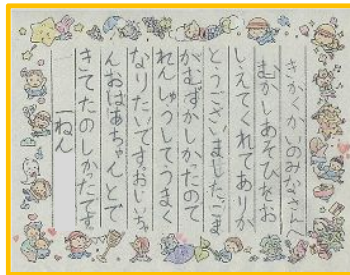 きかくかいのみなさんへ
むかしあそびをお
しえてくれてありが
とうございました。こま
がむずかしかたので
れんしゅうしてうまく
なりたいです。おじいち
んおばあちゃんとで
きてたのしかったです。
一ねん